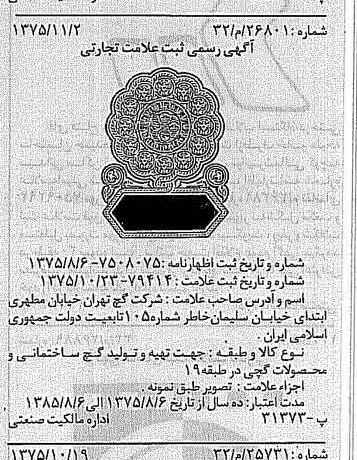 شماره : ۲۶۸۰۱/م/۳۲ ۱۳۷۵/۱۱/۲
آگهی رسمی ثبت علامت تجارتی
شماره و تاریخ ثبت اظهارنامه : ۷۵۰۸۰۷۵-۱۳۷۵/۸/۶
شماره و تاریخ ثبت علامت : ۷۹۴۱۴-۱۳۷۵/۱۰/۲۳
اسم و آدرس صاحب علامت : شرکت گچ تهران خیابان مطهری
ابتدای خیابان سلیمان خاطر شماره ۱۰۵ تابعیت دولت جمهوری
اسلامی ایران .
نوع کالا و طبقه : جهت تهیه و تولید گچ ساختمانی و
محصولات گچی در طبقه ۱۹
اجزاء علامت : تصویر طبق نمونه .
مدت اعتبار: ده سال از تاریخ ۱۳۷۵/۸/۶ الی ۱۳۸۵/۸/۶
پ - ۳۱۳۷۳ اداره مالکیت صنعتی
شماره : ۲۵۷۳۱/م/۳۲ ۱۳۷۵/۱۰/۱۹